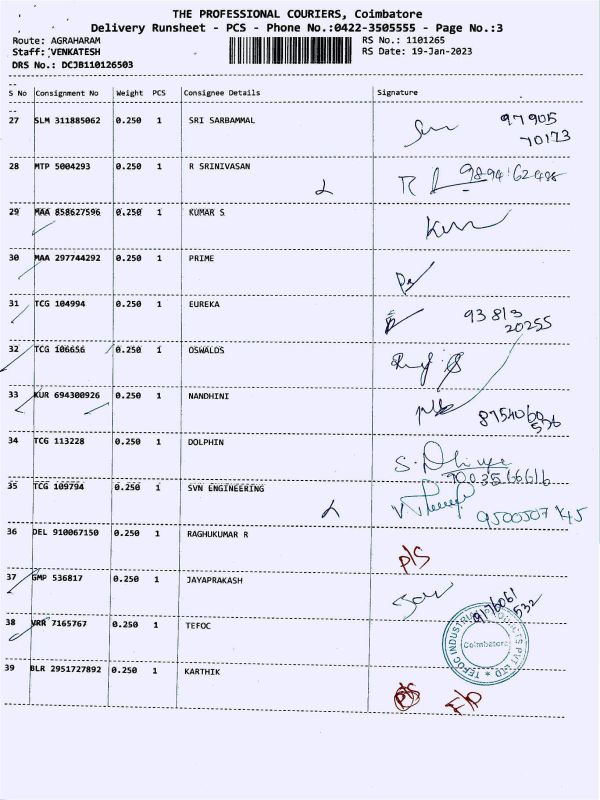 THE PROFESSIONAL COURIERS, Coimbatore
Delivery Runsheet - PCS - Phone No.:0422-3505555 - Page No.:3
Route: AGRAHARAM RS No.: 1101265
Staff: VENKATESH RS Date: 19-Jan-2023
DRS No.: DCJB110126503
S No Consignment No Weight PCS Consignee Details Signature
27 SLM 311885062 0.250 1 SRI SARBAMMAL 97905
70173
28 MTP 5004293 0.250 1 R SRINIVASAN
29 MAA 858627596 0.250 1 KUMAR S
30 MAA 297744292 0.250 1 PRIME
31 TCG 104994 0.250 1 EUREKA 93813
20255
32 TCG 106656 0.250 1 OSWALOS
33 KUR 694300926 0.250 1 NANDHINI
34 TCG 113228 0.250 1 DOLPHIN
35 TCG 109794 0.250 1 SVN ENGINEERING
36 DEL 910067150 0.250 1 RAGHUKUMAR R P/S
37 GMP 536817 0.250 1 JAYAPRAKASH
38 VRR 7165767 0.250 1 TEFOC
TEFOC INDUSTRIAL PRODUCTS PVT LTD
Coimbatore
39 BLR 2951727892 0.250 1 KARTHIK P/S